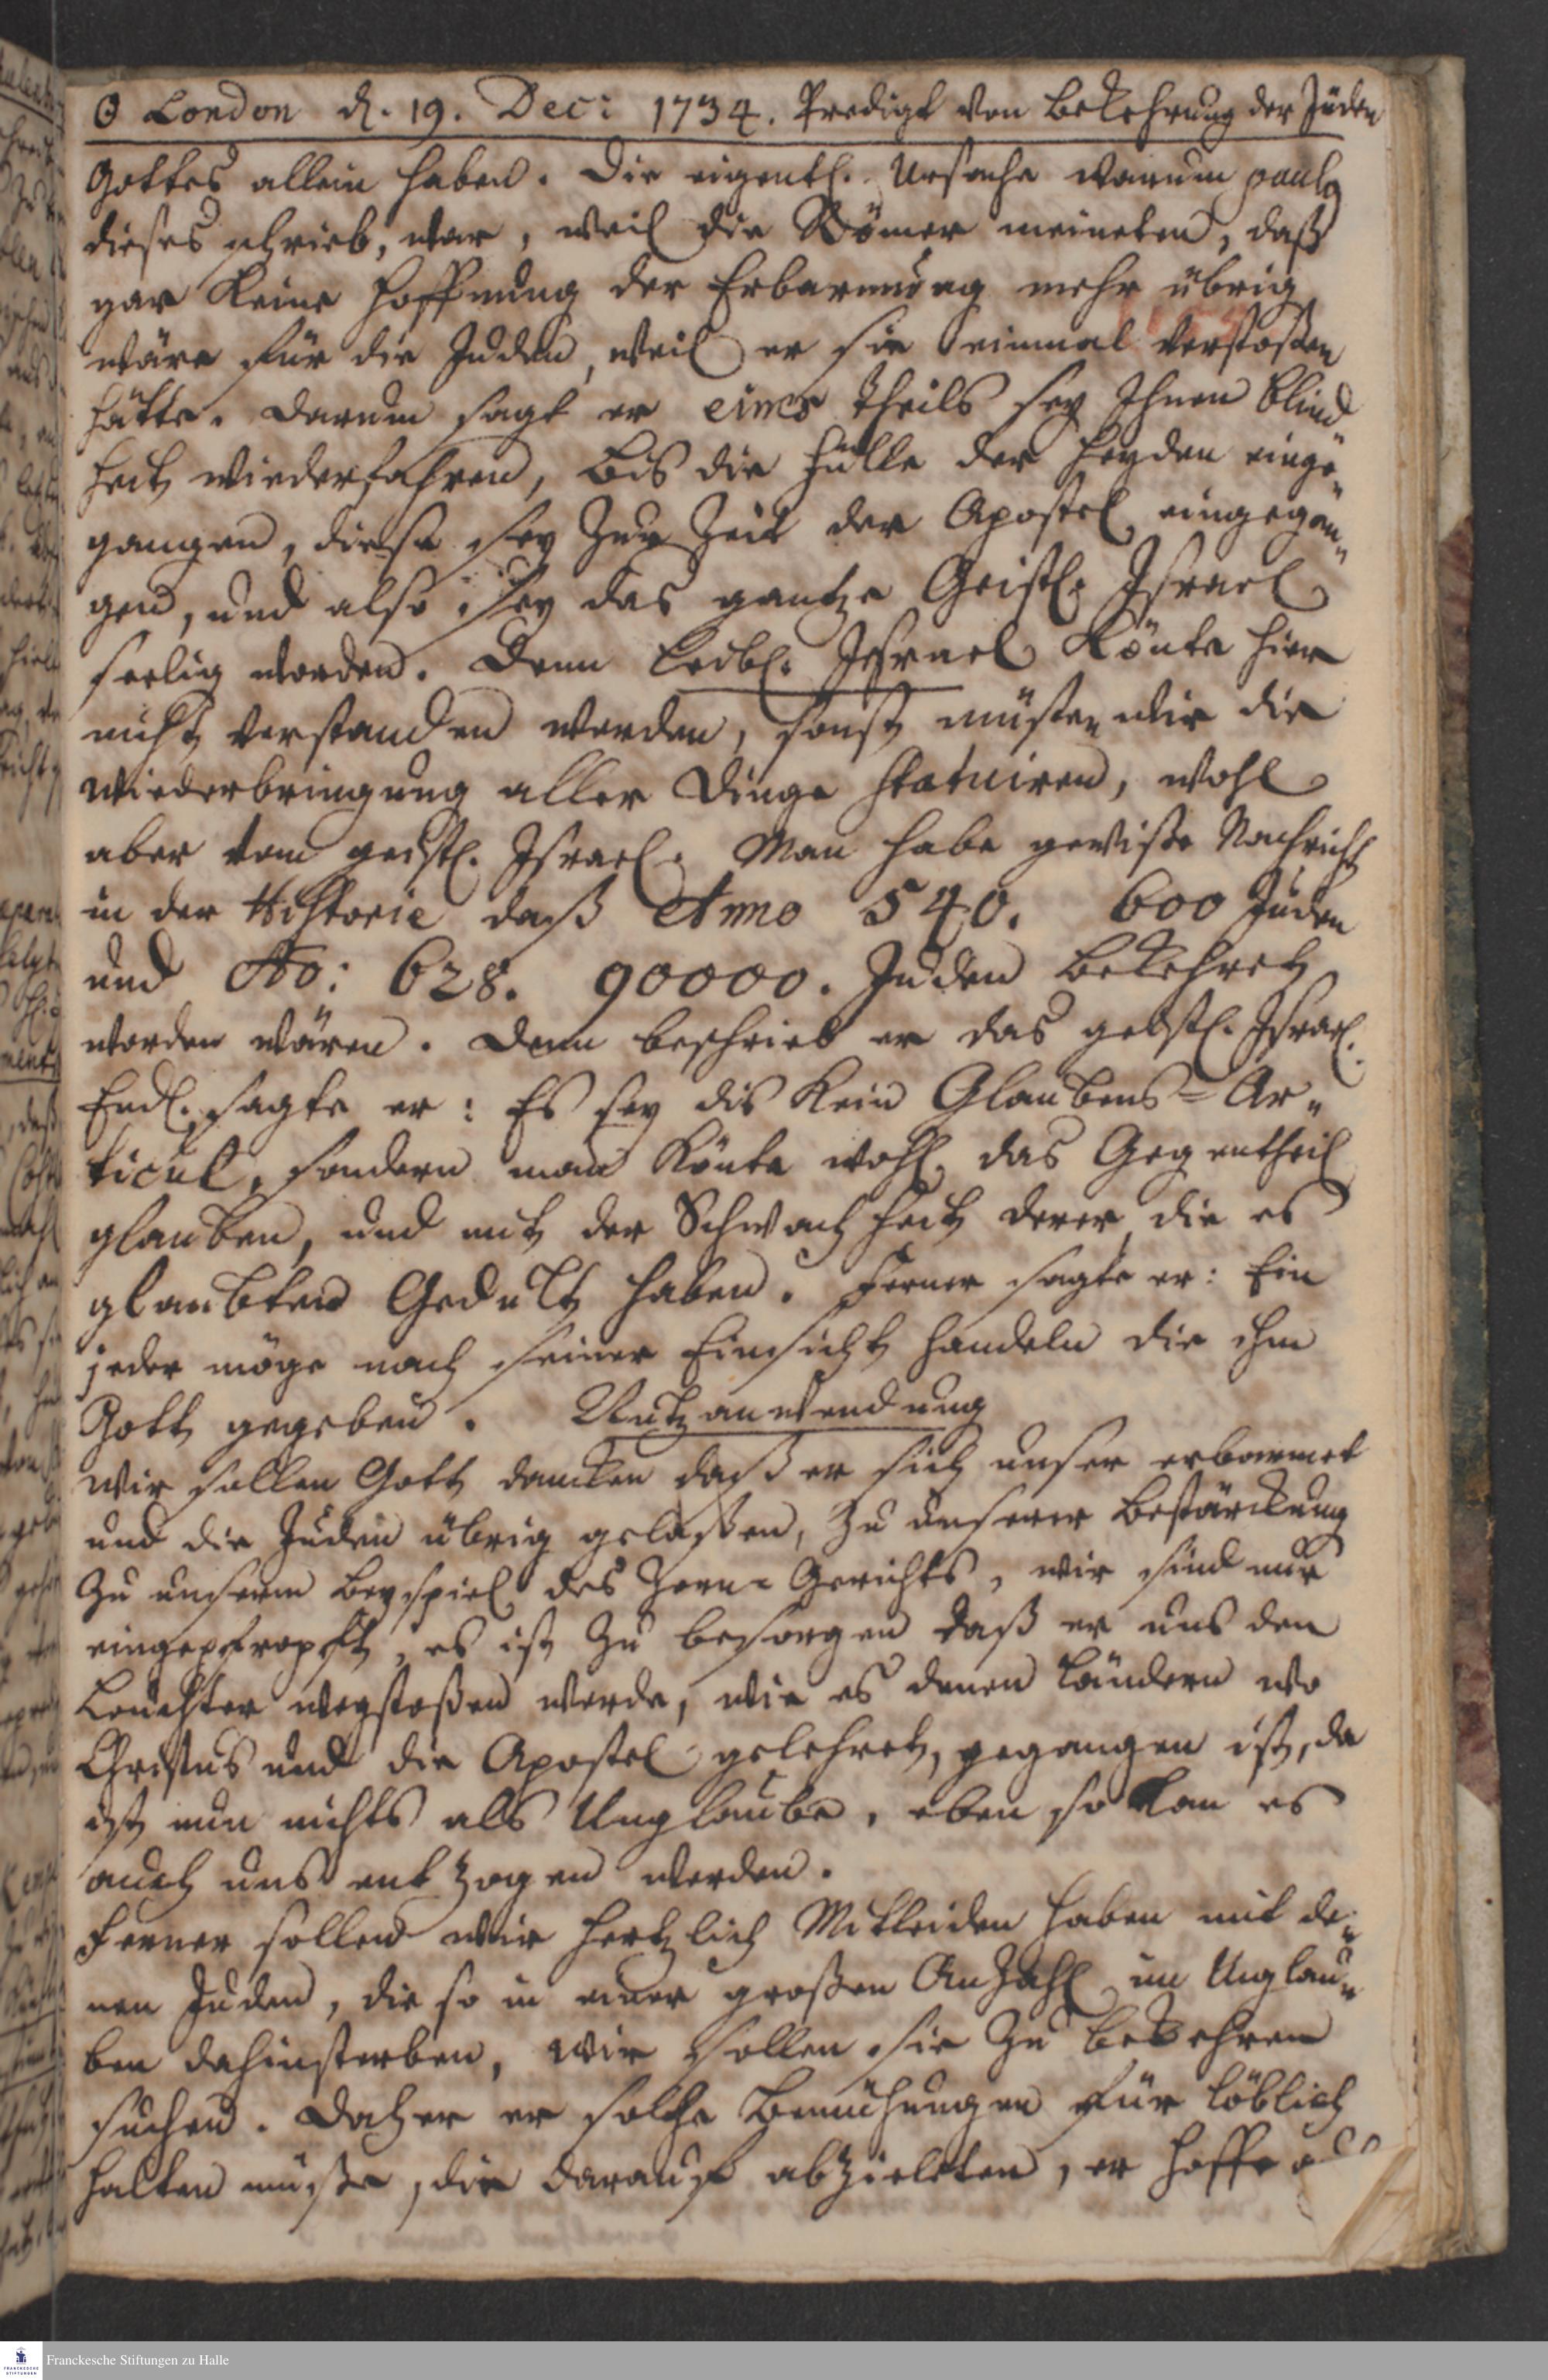 ☉ London d. 19. Dec: 1734. Predigt von Bekehrung der Jüden
Gottes allein haben. Die eigentl. Ursache warum Paulq
dieses schrieb, war, weil die Römer meineten, daß
gar keine Hoffnung der Erbarmung mehr übrig
wäre für die Juden, weil er sie einmal verstoßen
hätte. Darum sagt er eines Theils sey Ihnen Blind
heit wiederfahren, bis die Fülle der Heyden einge„
gangen, diese sey zur Zeit der Apostel eingegan„
gen, und also sey das gantze Geistl. Israel
seelig worden. Denn Leibl. Israel könte hier
nicht verstanden werden, sonst müsten wir die
Wiederbringung aller Dinge statuiren, wohl
aber vom geistl. Israel. Man habe gewiße Nachricht
in der Historie daß Anno 540. 600 Juden
und Ao: 628. 90000. Juden bekehret
worden wären. Denn beschrieb er das geistl. Israel.
Endl. sagte er: Es sey dis kein Glaubens-Ar„
ticul, sondern man könte wohl das Gegentheil
glauben, und mit der Schwachheit derer die es
glaubten Gedult haben. Ferner sagte er: Ein
jeder möge nach seiner Einsicht handeln die ihm
Gott gegeben. Nutzanwendung
Wir sollen Gott dancken daß er sich unser erbarmet
und die Juden übrig gelaßen, zu unserer Bestärckung
zu unserm Beyspiel des Zorn-Gerichts, wir sind nur
eingepfropft, es ist zu besorgen daß er uns den
Leuchter wegstoßen werde, wie es denen Ländern wo
Christus und die Apostel gelehret, gegangen ist, da
ist nun nichts als Unglaube, eben so kan es
auch uns entzogen werden.
Ferner sollen wir hertzlich Mitleiden haben mit de„
nen Juden, die so in einer großen Anzahl im Unglau„
ben dahinsterben, wir sollen sie zu bekehren
suchen. Daher er solche Bemühungen für löblich
halten müße, die darauf abzieleten, er hoffe
Franckesche Stiftungen zu Halle